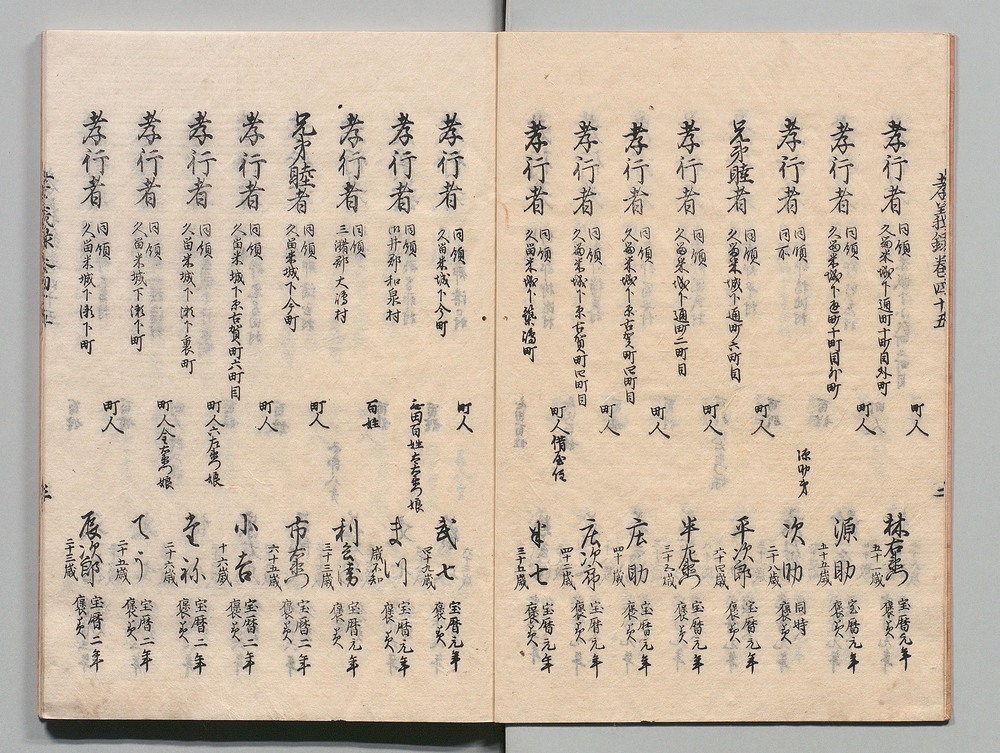 孝義録巻四十五
孝行者 同領 久留米城下通町十町目外町 町人 林右衛門 五十一歳 宝暦元年 褒美
孝行者 同領 久留米城下通町十町目外町 町人 源助 五十五歳 宝暦元年 褒美
孝行者 同領 同所 源助弟 次助 二十八歳 同時 褒美
兄弟睦者 同領 久留米城下通町六町目 町人 平次郎 六十四歳 宝暦元年 褒美
孝行者 同領 久留米城下通町二町目 町人 半右衛門 三十三歳 宝暦元年 褒美
孝行者 同領 久留米城下原古賀町四町目 町人 庄助 四十歳 宝暦元年 褒美
孝行者 同領 久留米城下原古賀町四町目 町人 庄次郎 四十二歳 宝暦元年 褒美
孝行者 同領 久留米城下 町 町人借屋住 半七 三十五歳 宝暦元年 褒美
孝行者 同領 久留米城下今町 町人 武七 四十九歳 宝暦元年 褒美
孝行者 同領 御井郡和泉村 百姓 娘 ま川 歳不知 宝暦元年 褒美
孝行者 同領 三潴郡大溝村 百姓 利 三十三歳 宝暦元年 褒美
兄弟睦者 同領 久留米城下今町 町人 市右衛門 六十五歳 宝暦二年 褒美
孝行者 同領 久留米城下原古賀町六町目 町人 小吉 十六歳 宝暦二年 褒美
孝行者 同領 久留米城下瀬下裏町 町人六右衛門娘 堂祢 二十六歳 宝暦二年 褒美
孝行者 同領 久留米城下瀬下町 町人 娘 てう 二十五歳 宝暦二年 褒美
孝行者 同領 久留米城下瀬下町 町人 辰次郎 二十三歳 宝暦二年 褒美